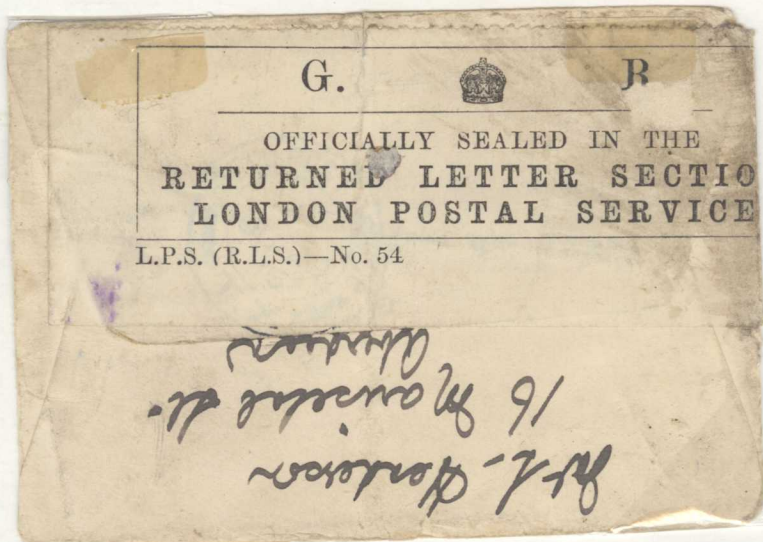 G. R
OFFICIALLY SEALED IN THE
RETURNED LETTER SECTIO
LONDON POSTAL SERVICE
L.P.S. (R.L.S.)—No. 54
Henderson
16 St.
Aberdeen